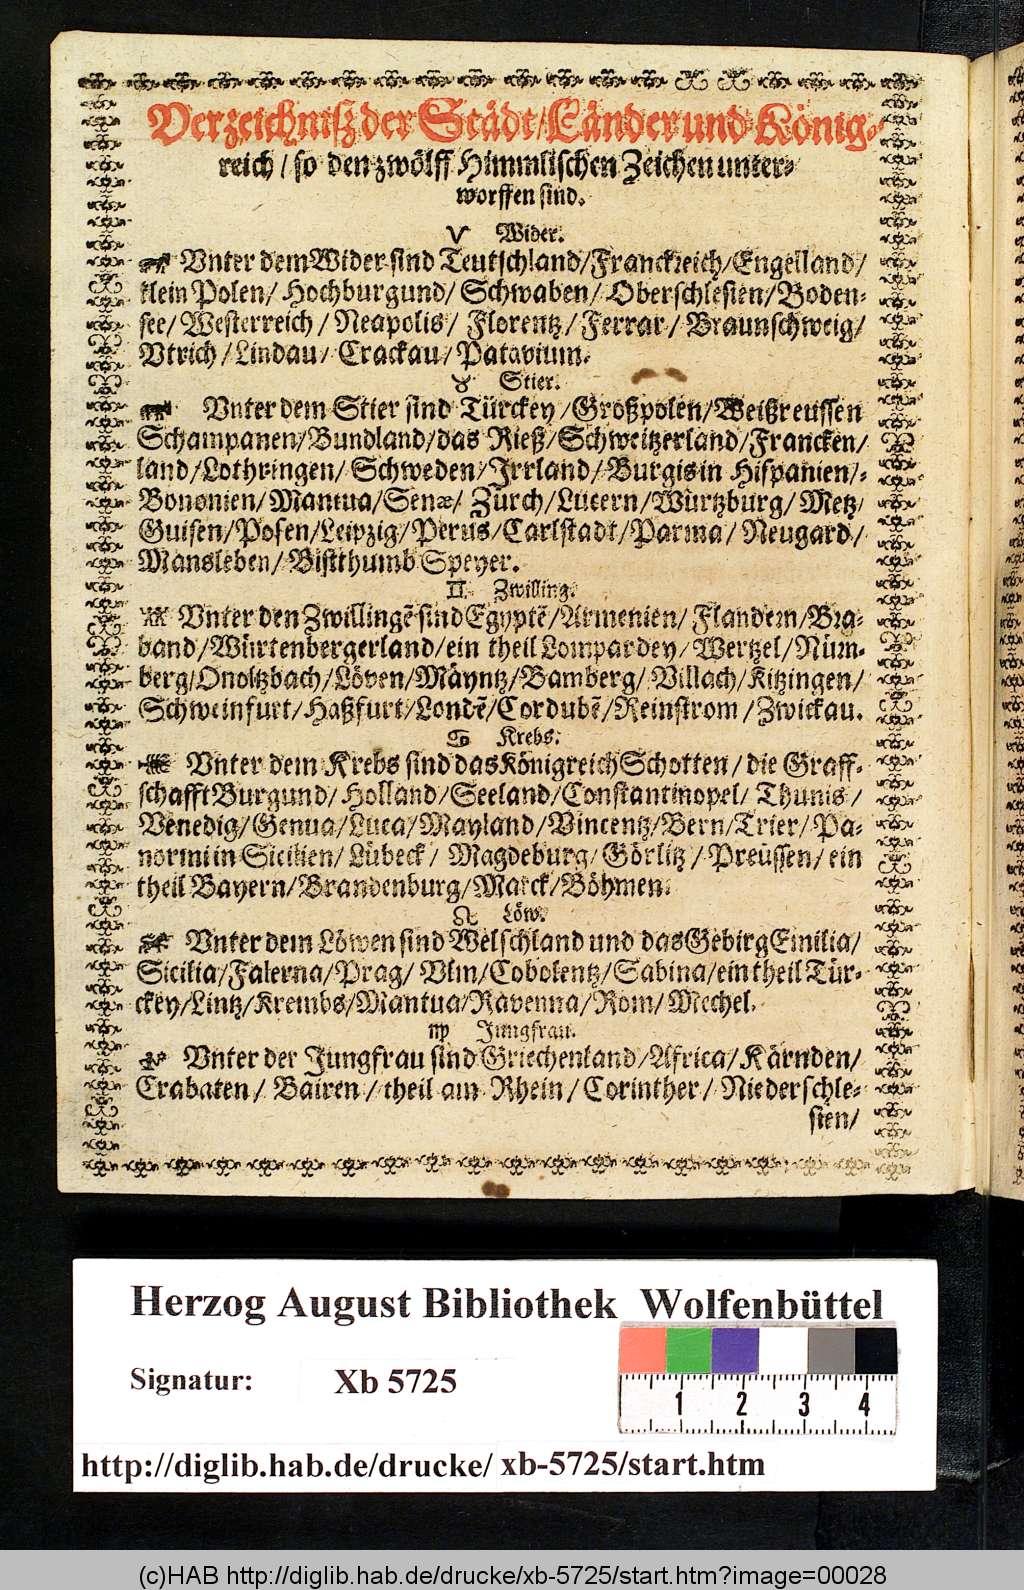 Verzeichniß der Städt/Länder und König-
reich / so den zwölff Himmlischen Zeichen unter-
worffen sind.
♈ Wider.
Vnter dem Wider sind Teutschland/Franckreich/Engelland/
klein Polen/ Hochburgund/ Schwaben/ Oberschlesien/ Boden-
see/ Westerreich / Neapolis/ Florentz/ Ferrar/ Braunschweig/
Vtrich /Lindau/ Crackau/ Patavium.
♉ Stier.
Vnter dem Stier sind Türckey /Großpolen/Weißreussen
Schampanen/Bundland/das Rieß/Schweitzerland/Francken/
land/Lothringen/ Schweden/Irrland/ Burgis in Hispanien/
Bononien/ Mantua/Senæ/ Zürch/Lucern/Würtzburg/ Metz/
Guisen/Posen/Leipzig/Perus/Carlstadt/Parma/ Neugard/
Mansleben/ Bistthumb Speyer.
♊ Zwilling.
Vnter den Zwillingẽ sind Egyptẽ/Armenien/ Flandern/Bra-
band/Würtenbergerland/ein theil Lompardey/ Wertzel/Nürn-
berg/Onoltzbach/Löven/Mäyntz/Bamberg/ Villach/Kitzingen/
Schweinfurt/Haßfurt/Londẽ/Cordubẽ/Reinstrom /Zwickau.
♋ Krebs.
Vnter dem Krebs sind das Königreich Schotten/ die Graff-
schafft Burgund/ Holland/Seeland/Constantinopel/ Thunis /
Venedig/Genua/Luca/Mayland/Vincentz/Bern/Trier/ Pa-
normi in Sicilien/ Lübeck/ Magdeburg/ Görlitz/ Preüssen/ ein
theil Bayern/Brandenburg/Marck/Böhmen.
♌ Löw.
Vnter dem Löwen sind Welschland und das Gebirg Emilia/
Sicilia/Falerna/Prag/ Vlm/Cobolentz/Sabina/ein theil Tür-
ckey/Lintz/Krembs/Mantua/Ravenna/Rom/ Mechel.
♍ Jungfrau.
Vnter der Jungfrau sind Griechenland/Africa/ Kärnden/
Crabaten/ Bairen / theil am Rhein/ Corinther/ Niederschle-
sien/
Herzog August Bibliothek Wolfenbüttel
Signatur: Xb 5725
1 2 3 4
http://diglib.hab.de/drucke/ xb-5725/start.htm
(c)HAB http://diglib.hab.de/drucke/xb-5725/start.htm?image=00028